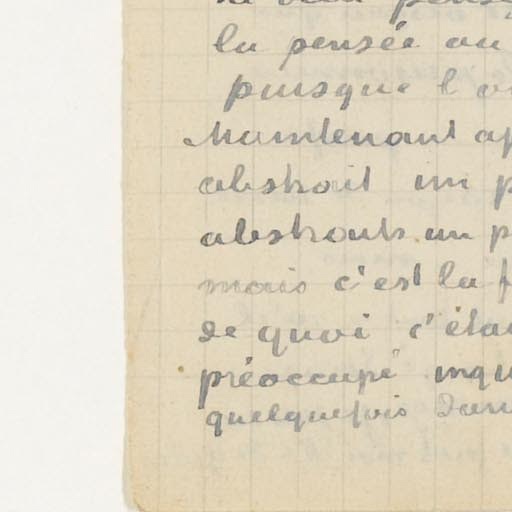 la pensée au
puisque l'
Maintenant
abstrait un
abstraits un
mais c'est la
de quoi c'étai
préoccupé inqu
quelquefois dans